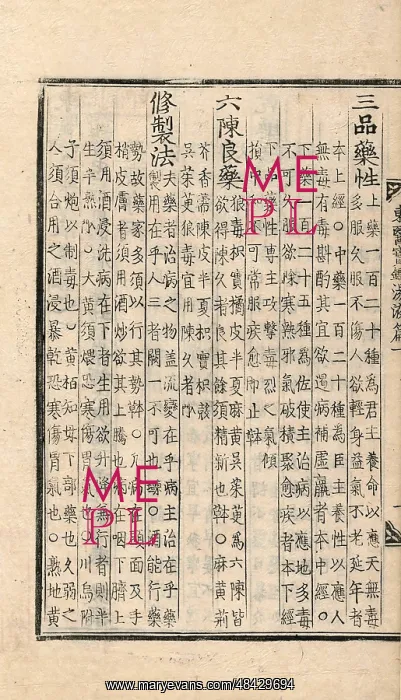 東醫寶鑑湯液篇一
三品藥性
上藥一百二十種為君主養命以應天無毒
多服久服不傷人欲輕身益氣不老延年者
本上經○中藥一百二十種為臣主養性以應人
無毒有毒斟酌其宜欲遏病補虛羸者本中經○
下藥一百二十五種為佐使主治病以應地多毒
不可久服欲除寒熱邪氣破積聚愈疾者本下經
下品藥性專主攻擊毒烈之氣傾
損中和不可常服疾愈即止
六陳良藥
狼毒枳實橘皮半夏麻黃吳茱萸為六陳皆
欲得陳久者良其餘須精新也○麻黃荊
芥香薷陳皮半夏枳實枳殼
吳茱萸狼毒宜用陳久者
修製法
夫藥者治病之物盖流變在乎病主治在乎藥
製用在乎人三者闕一不可也○酒能行藥
勢故藥家多須以行其勢○凡病在頭面及手
梢皮膚者須用酒炒欲其上騰也病在咽下臍上
須用酒浸洗病在下者生用欲升降兼行者則半
生半熟○大黃須煨恐寒傷胃氣也○川烏附
子須炮以制毒也○黃栢知母下部藥也久弱之
人須合用之酒浸暴乾恐寒傷胃氣也○熟地黃
ME
PL
ME
PL
www.maryevans.com/48429694